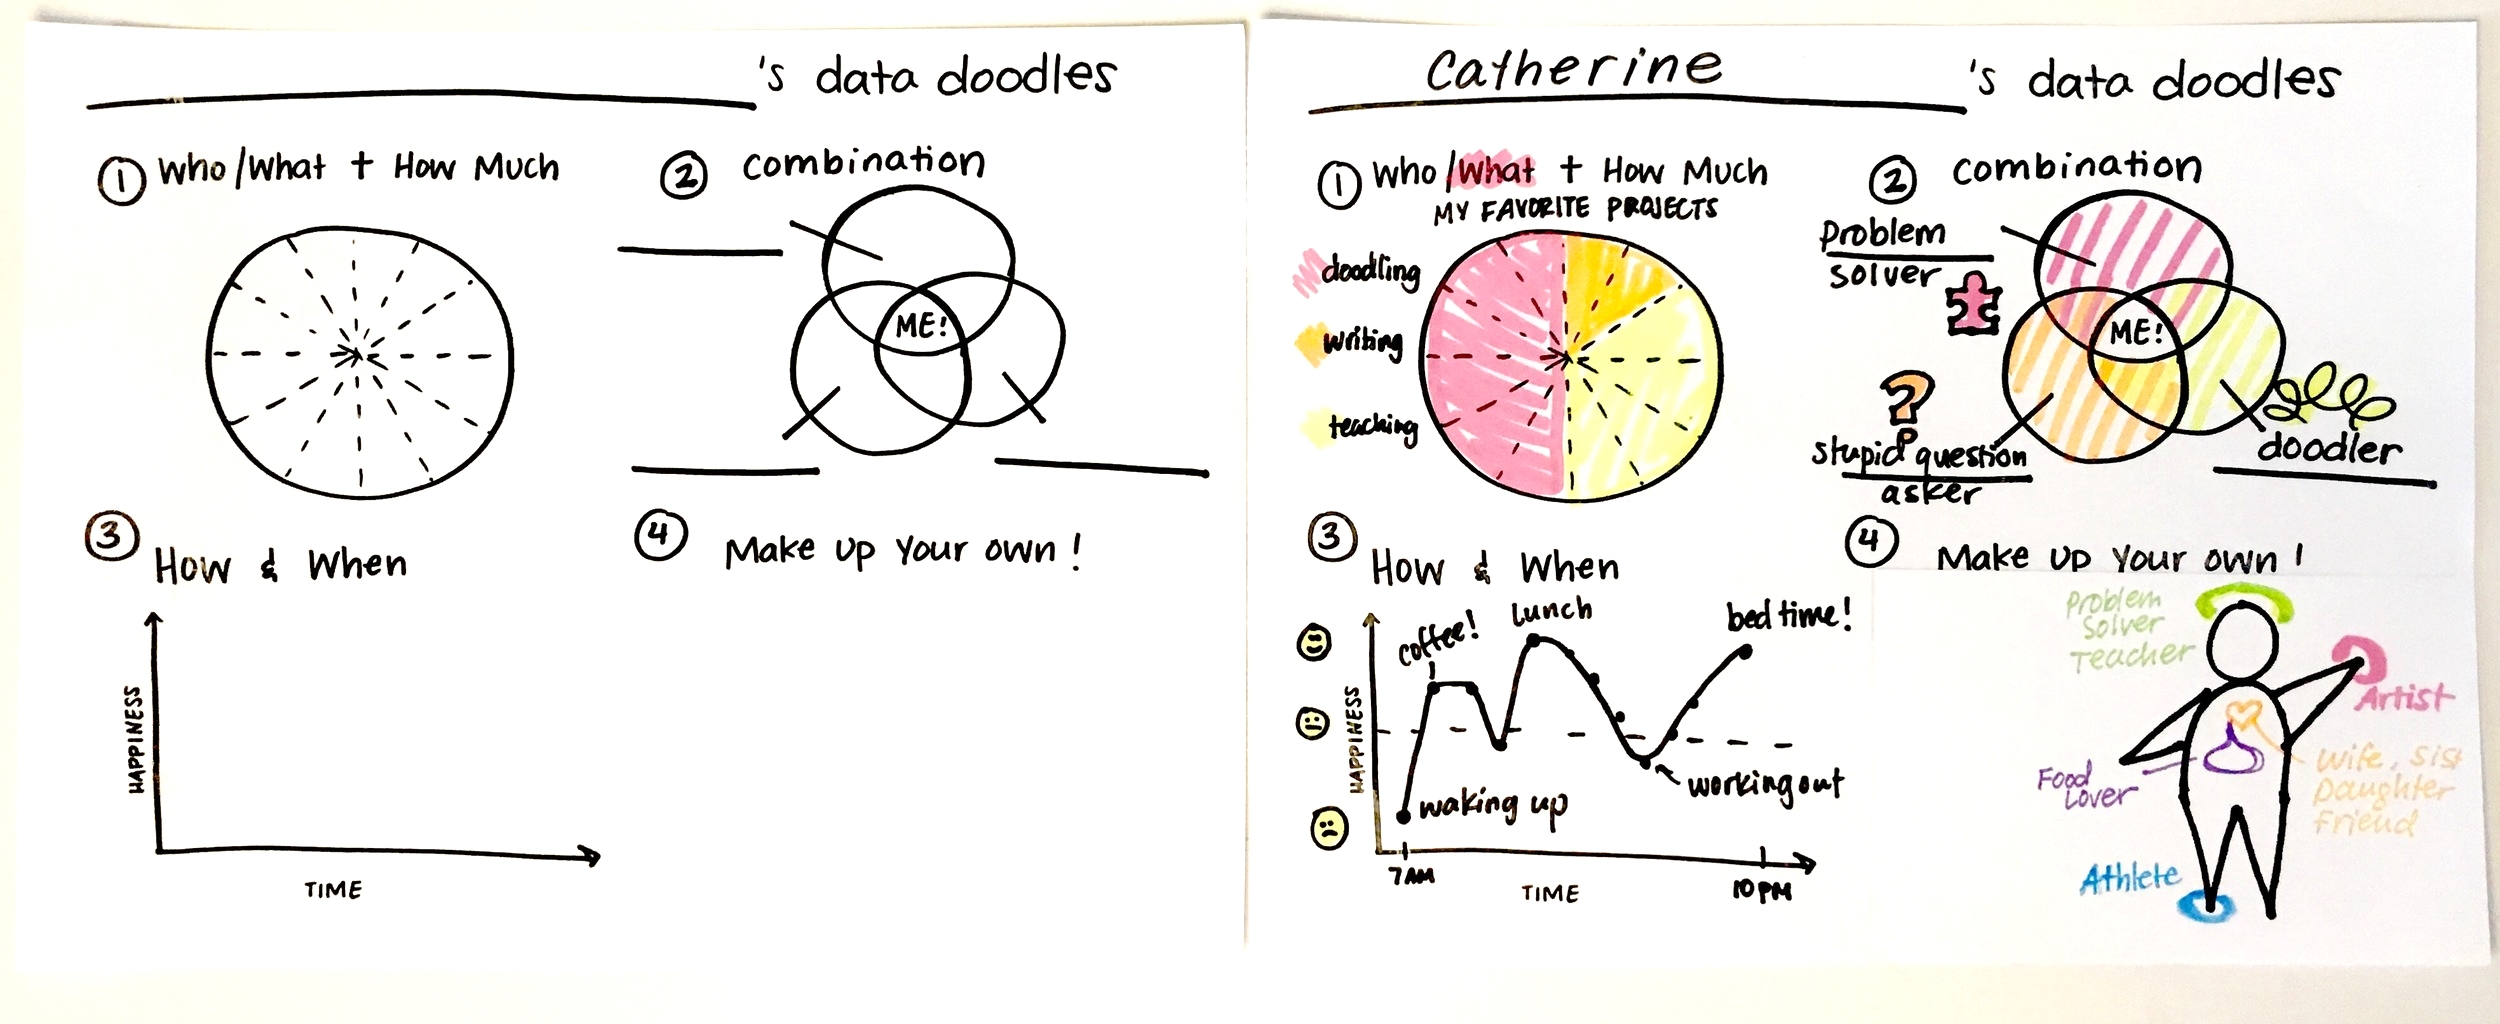 's data doodles
1 Who/What + How Much
2 combination
ME!
3 How & When
HAPPINESS
TIME
4 Make up your own!
Catherine 's data doodles
1 Who/What + How Much
MY FAVORITE PROJECTS
doodling
writing
teaching
2 combination
Problem
solver
ME!
?
stupid question
asker
doodler
3 How & When
HAPPINESS
coffee!
lunch
bed time!
waking up
working out
7AM
TIME
10PM
4 Make up your own!
Problem
Solver
Teacher
Artist
Food
Lover
Wife, Sis
Daughter
Friend
Athlete